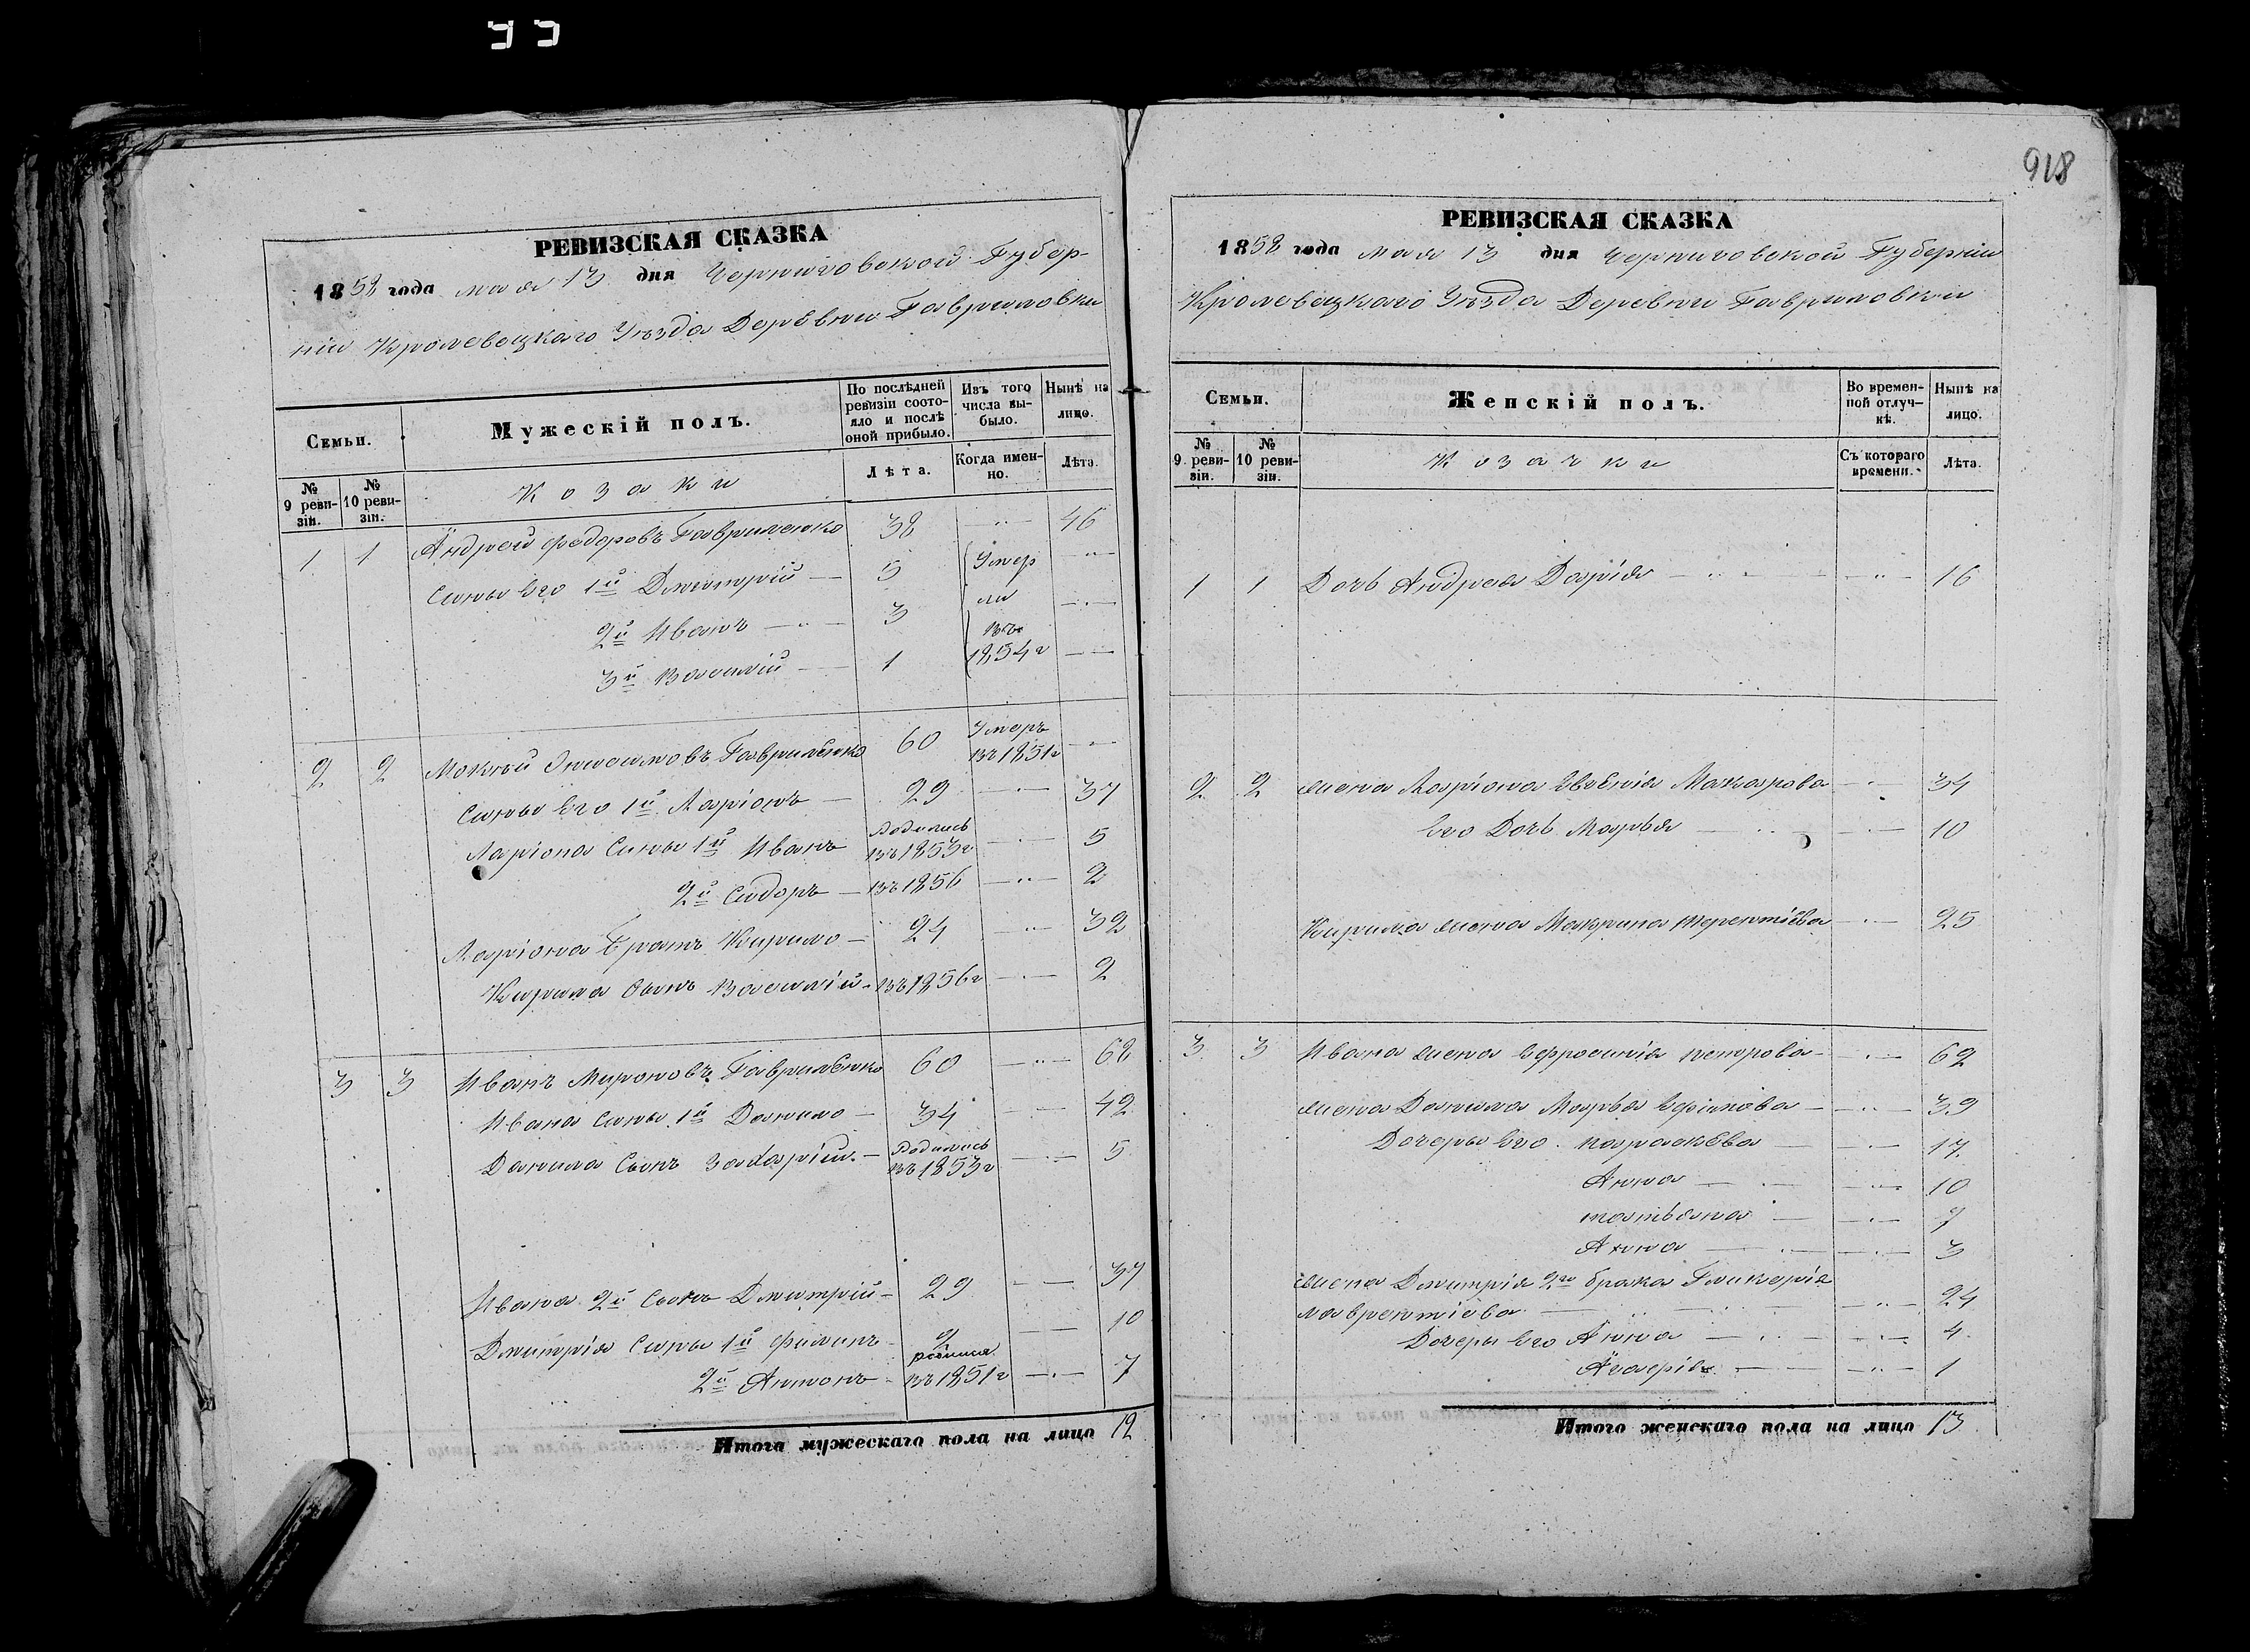 918
РЕВИЗСКАЯ СКАЗКА
1858 года мая 13 дня Черниговской Губер-
ніи Кролевецкаго Уѣзда Деревни Гавриловки
Семьи.
Мужескій полъ.
По послѣдней ревизіи состо-яло и послѣ оной прибыло.
Изъ того числа вы-было.
Нынѣ на лицо.
№ 9 реви-зіи.
№ 10 реви-зіи.
Козаки
Лѣта.
Когда имен-но.
Лѣта.
1 1 Андрей Федоровъ Гавриленко 38 — 46
Сыны Его 1й Дмитрій — 5 Умер —
ли
2й Иванъ — 3 въ —
3й Василій — 1 1854 г —
2 2 Мокѣй Онисимовъ Гавриленко 60 Умеръ въ 1851 г —
Сыны Его 1й Ларіонъ — 29 — 37
Ларіона Сыны 1й Иванъ Родились въ 1853 г — 5
2й Сидоръ — въ 1856 — 2
Ларіона Братъ Кирило — 24 — 32
Кирила Сынъ Василій — въ 1856 г — 2
3 3 Иванъ Мироновъ Гавриленко 60 — 68
Ивана Сыны 1й Данило — 34 — 42
Данила Сынъ Захарій — Родились въ 1853 г — 5
Ивана 2й Сынъ Дмитрій — 29 — 37
Дмитрія Сыны 1й Филипъ — 2 — 10
2й Антонъ — родился въ 1851 г — 7
Итого мужескаго пола на лицо 12
РЕВИЗСКАЯ СКАЗКА
1858 года мая 13 дня Черниговской Губерніи
Кролевецкаго Уѣзда Деревни Гавриловки
Семьи.
Женскій полъ.
Во времен-ной отлуч-кѣ.
Нынѣ на лицо.
№ 9 реви-зіи.
№ 10 реви-зіи.
Козачки
Съ котораго времени.
Лѣта.
1 1 Дочь Андрея Дарія — — 16
2 2 жена Ларіона Евгенія Макарова — 34
Его Дочь Марья — — 10
Кирила жена Макрина Терентіева — 25
3 3 Ивана жена Ефросинія Петрова — — 62
жена Данила Марья Ефимова — — 39
Дочери Его Параскева — — 17
Анна — — 10
татьяна — — 7
Анна — — 3
жена Дмитрія 2го брака Гликерія
лаврентіова — — 24
Дочери Его Анна — — 4
— — 1
Итого женскаго пола на лицо 13